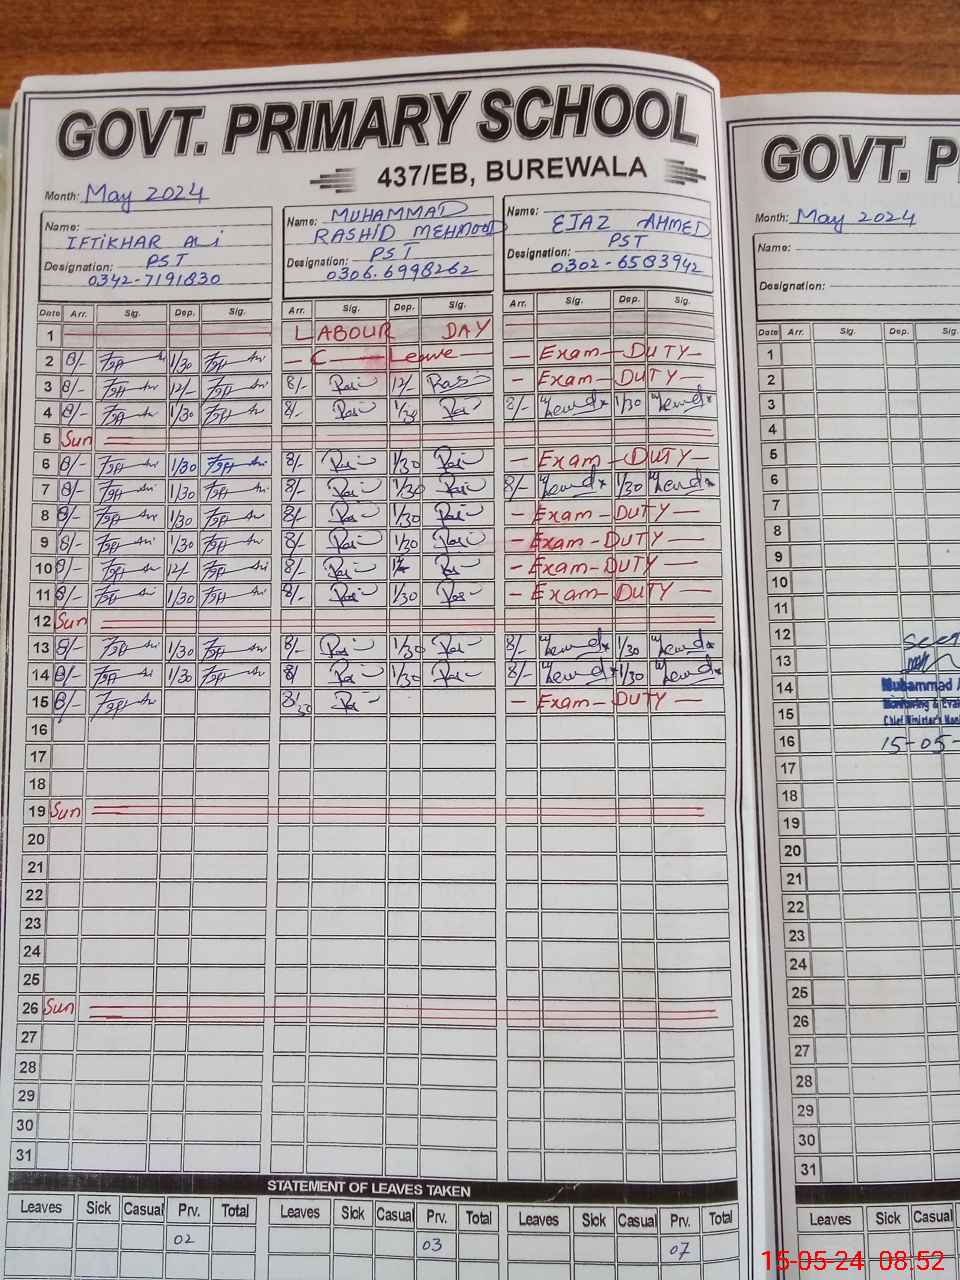 GOVT. PRIMARY SCHOOL
437/EB, BUREWALA
Month: May 2024
Name: IFTIKHAR Ali
Designation: PST
0342-7191830
Name: MUHAMMAD
RASHID MEHMOOD
Designation: PST
0306.6998262
Name: EJAZ AHMED
PST
Designation: 0302-6583942
Date Arr. Sig. Dep. Sig. Arr. Sig. Dep. Sig. Arr. Sig. Dep. Sig.
1 LABOUR DAY
2 8/- 1/30 - C - Leave - - Exam - DUTY -
3 8/- 12/- 8/- 12/- - Exam - DUTY -
4 8/- 1/30 8/- 1/30 8/- 1/30
5 Sun
6 8/- 1/30 8/- 1/30 - Exam - DUTY -
7 8/- 1/30 8/- 1/30 8/- 1/30
8 8/- 1/30 8/- 1/30 - Exam - DUTY -
9 8/- 1/30 8/- 1/30 - Exam - DUTY -
10 8/- 12/- 8/- - Exam - DUTY -
11 8/- 1/30 8/- 1/30 - Exam - DUTY -
12 Sun
13 8/- 1/30 8/- 1/30 8/- 1/30
14 8/- 1/30 8/- 1/30 8/- 1/30
15 8/- - Exam - DUTY -
16
17
18
19 Sun
20
21
22
23
24
25
26 Sun
27
28
29
30
31
STATEMENT OF LEAVES TAKEN
Leaves Sick Casual Prv. Total Leaves Sick Casual Prv. Total Leaves Sick Casual Prv. Total
02 03 07
GOVT. P
Month: May 2024
Name:
Designation:
Date Arr. Sig. Dep. Sig.
1
2
3
4
5
6
7
8
9
10
11
12
13
14 Muhammad
15 Monitoring &
Chief Minister's
16 15-05-
17
18
19
20
21
22
23
24
25
26
27
28
29
30
31
Leaves Sick Casual
15-05-24 08:52